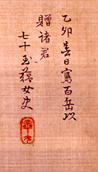 乙卯春日寫百岳以
贈諸君
七十五𫉬女史